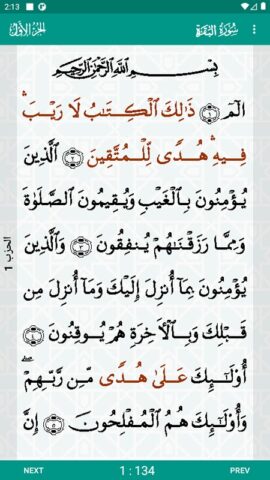 2:13
الجزء الأول
سورة البقرة
بسم الله الرحمن الرحيم
الٓمٓ ﴿١﴾ ذَٰلِكَ ٱلْكِتَـٰبُ لَا رَيْبَ ۛ
فِيهِ ۛ هُدًى لِّلْمُتَّقِينَ ﴿٢﴾ ٱلَّذِينَ
يُؤْمِنُونَ بِٱلْغَيْبِ وَيُقِيمُونَ ٱلصَّلَوٰةَ
وَمِمَّا رَزَقْنَـٰهُمْ يُنفِقُونَ ﴿٣﴾ وَٱلَّذِينَ
يُؤْمِنُونَ بِمَآ أُنزِلَ إِلَيْكَ وَمَآ أُنزِلَ مِن
قَبْلِكَ وَبِٱلْـَٔاخِرَةِ هُمْ يُوقِنُونَ ﴿٤﴾
أُو۟لَـٰٓئِكَ عَلَىٰ هُدًى مِّن رَّبِّهِمْ ۖ
وَأُو۟لَـٰٓئِكَ هُمُ ٱلْمُفْلِحُونَ ﴿٥﴾ إِنَّ
الحزب 1
NEXT
1 : 134
PREV